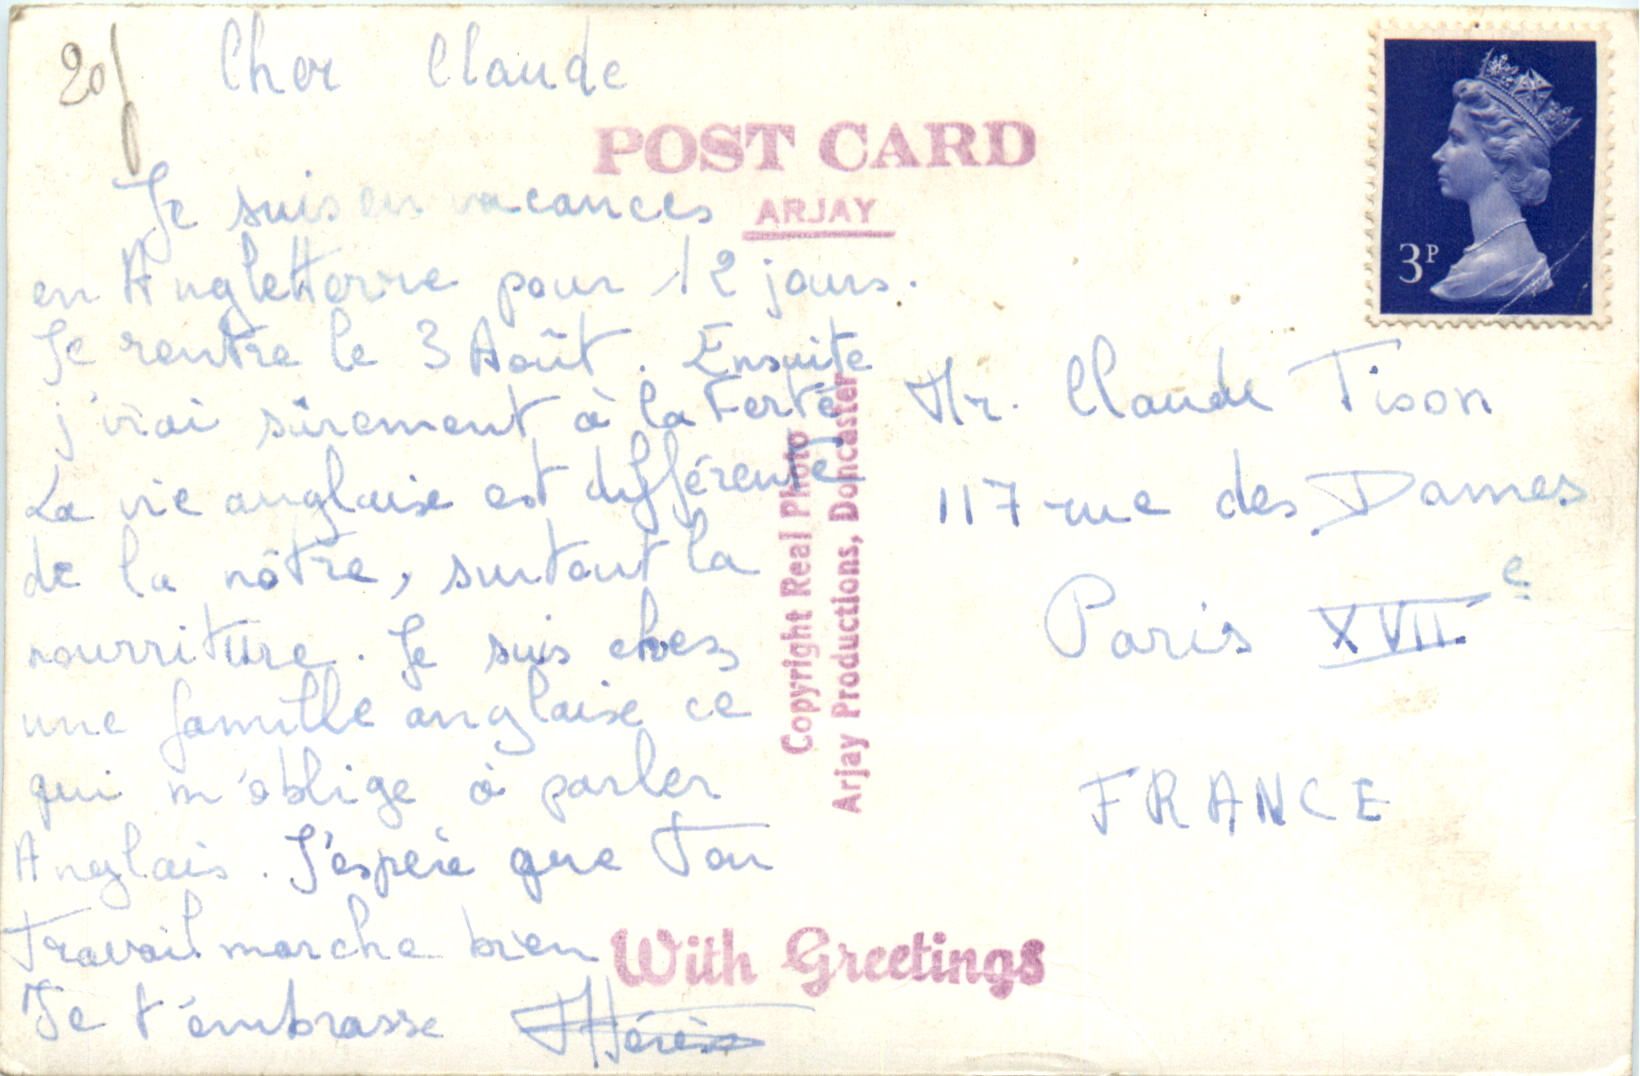 20f
Cher Claude
POST CARD
ARJAY
Je suis en vacances
en Angletterre pour 12 jours.
Je rentre le 3 Août. Ensuite
j'irai sûrement à la Ferté
La vie anglaise est différente
de la nôtre, surtout la
nourriture. Je suis chez
une famille anglaise ce
qui m'oblige à parler
Anglais. J'espère que ton
travail marche bien
Je t'embrasse Thérèse
Copyright Real Photo
Arjay Productions, Doncaster
With Greetings
3P
Mr. Claude Tison
117 rue des Dames
Paris XVII e
FRANCE